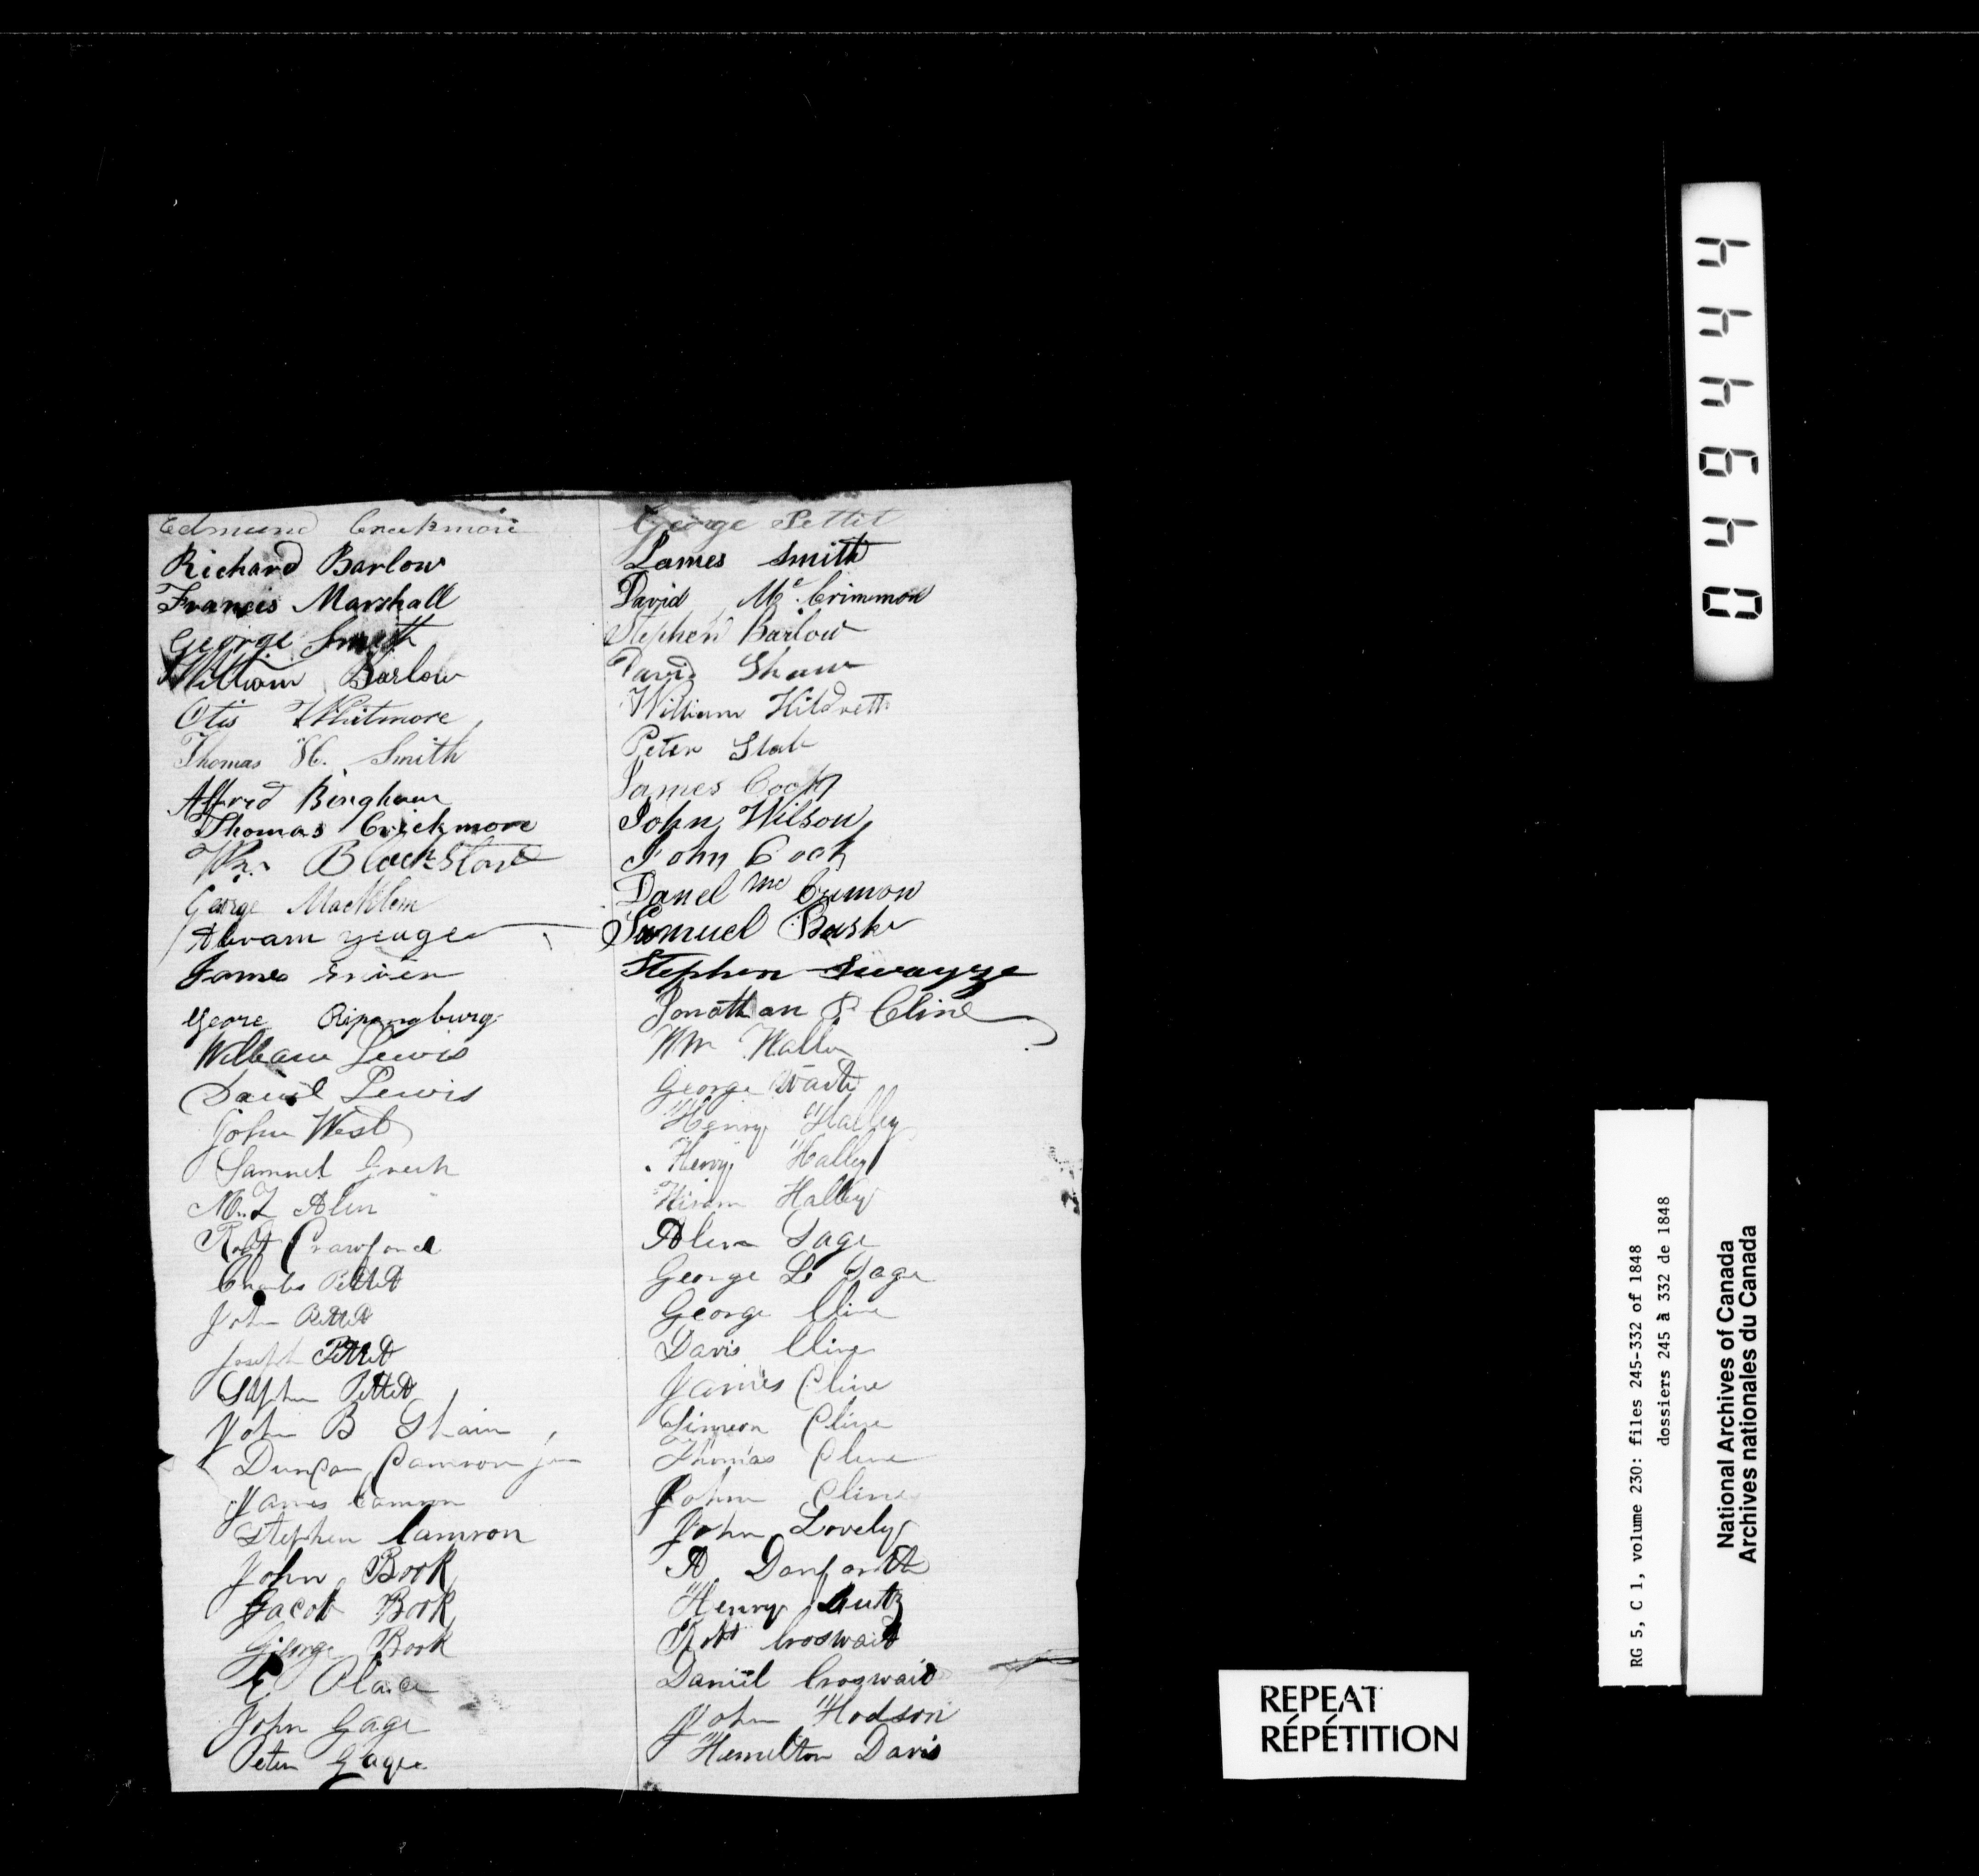 Edmund Crickmore
Richard Barlow
Francis Marshall
George Smith
William Barlow
Otis Whitmore
Thomas H. Smith
Alfrid Bingham
Thomas Crickmore
Wm. Blackstone
George Macklem
Abram yeager
James
Geore Ripengburg
William Lewis
Daniel Lewis
John West
Samuel
M. L Alen
Robt Crawford
Charles Pettit
John Pettit
Joseph Pettit
Stephen Pettit
John B Shain
Duncan Camron jun
James Camron
Stephen Camron
John Book
Jacob Book
George Book
Place
John Gage
Peter Gage
George Pettit
James Smith
David Mc Crimmon
Stephen Barlow
David Shaw
William Hildrett
Peter Slat
James Cook
John Wilson
John Cook
Danel Mc Crimon
Samuel
Stephen Swayze
Jonathan P Cline
Wm
George
Henry Halley
Henry Halley
Hiram Halley
Alen Gage
George L Gage
George Cline
Davis Cline
James Cline
Simeon Cline
Thomas Cline
John Cline
John Lovely
A Danforth
Henry Lutz
Robt Croswait
Daniel Crogwait
John Hodson
Hemelton Davis
044944
RG 5, C 1, volume 230: files 245-332 of 1848
dossiers 245 à 332 de 1848
National Archives of Canada
Archives nationales du Canada
REPEAT
RÉPÉTITION